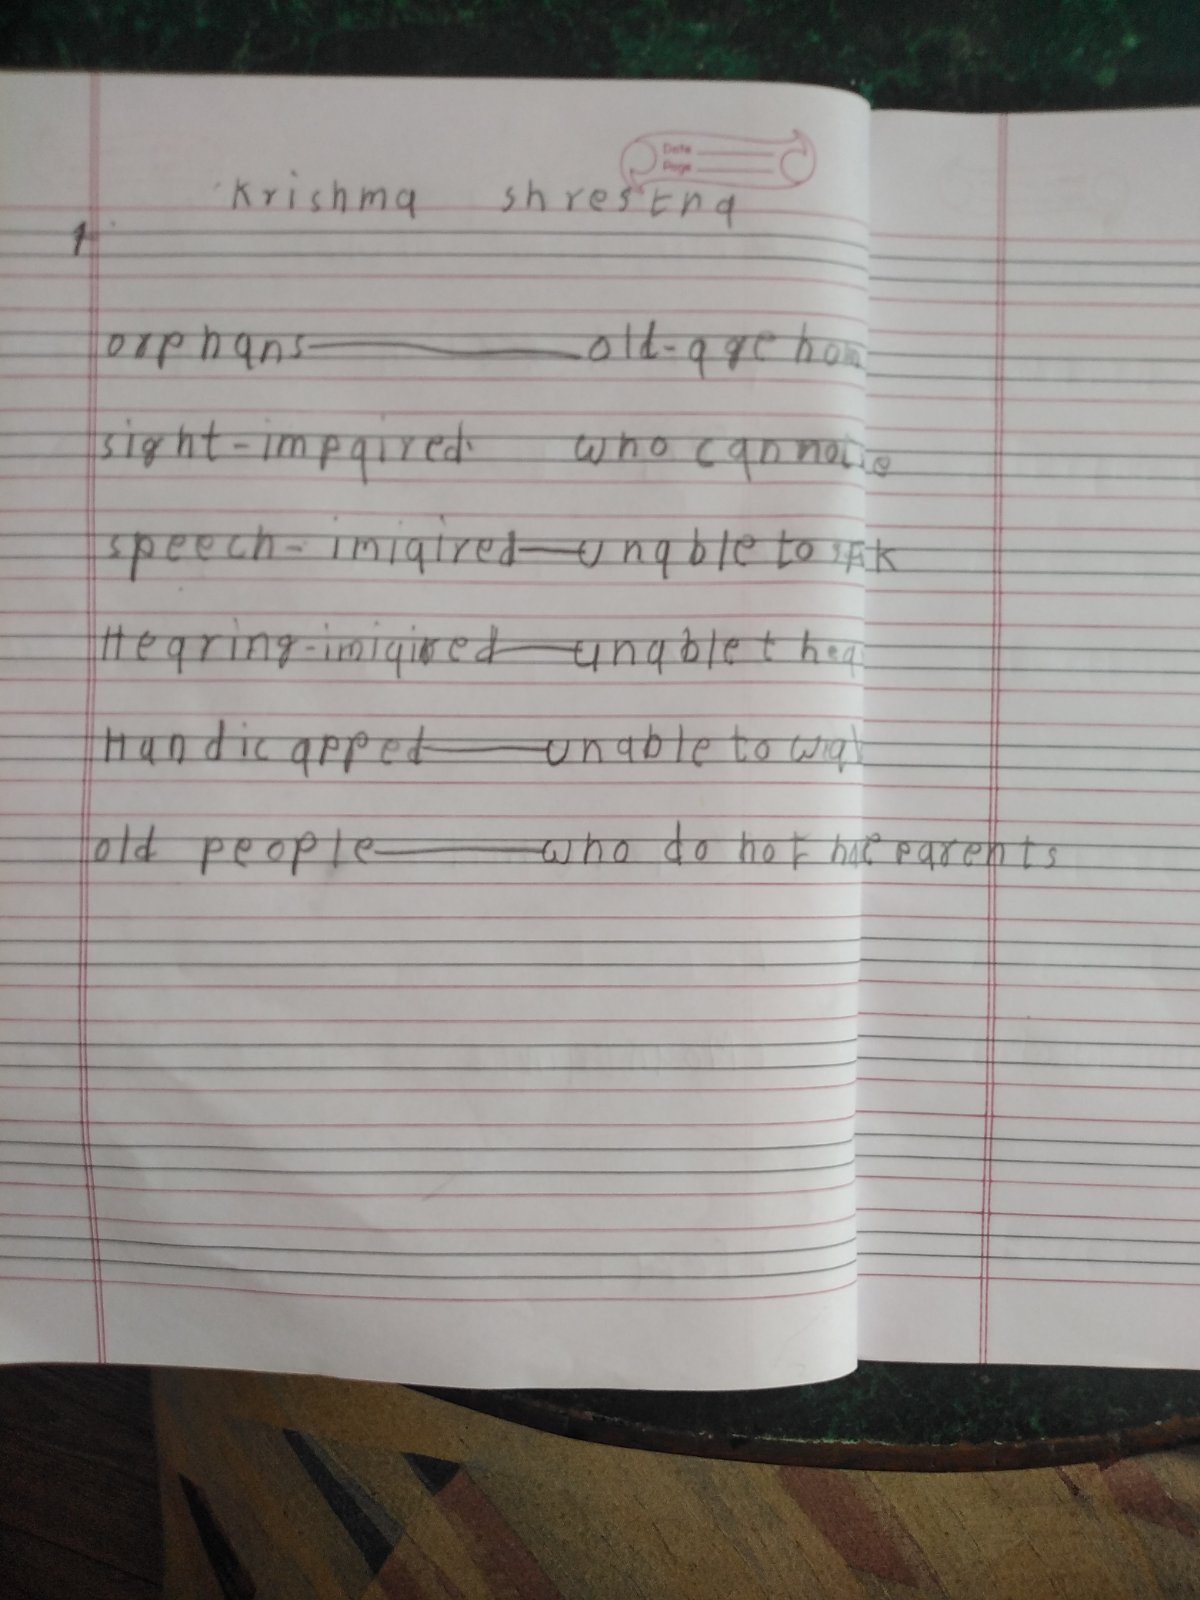 Date
Page
Krishma shrestha
1
orphans old-age hom
sight-impaired. who cannot
speech-imiaired unable to
Hearing-imiaired unable t hea
Handicapped unable to wal
old people who do not hae parents